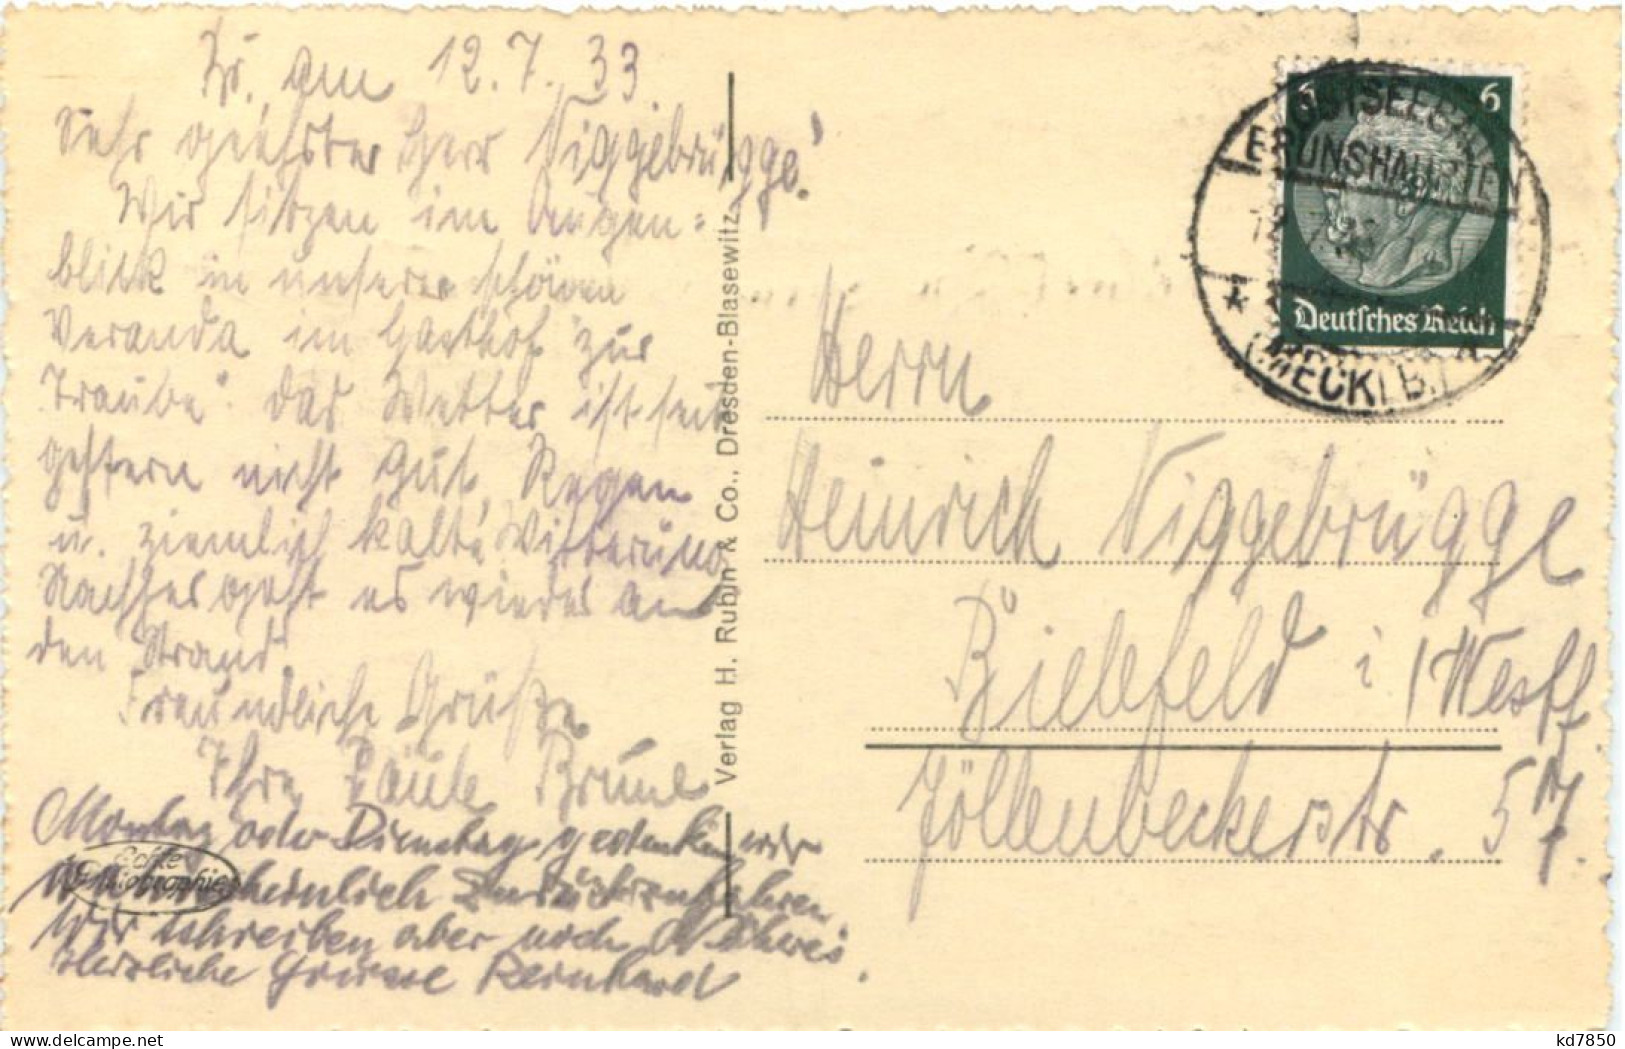 Br. am 12.7.33.
Sehr geehrter Herr Niggebrügge!
Wir sitzen im Augen=
blick in unserer schönen
Veranda im Gasthof "zur
Traube". Das Wetter ist seit
gestern nicht gut, Regen
u. ziemlich kalte Witterung
Nachher geht es wieder an
den Strand.
Freundliche Grüße
Ihre Brune
Montag oder Dienstag gedenken wir
wahrscheinlich zurückzufahren
Wir schreiben aber noch
Herzliche Grüsse Reinhard
Echte Photographie
Verlag H. Rubin & Co., Dresden-Blasewitz
6 6
Deutsches Reich
OSTSEEBAD
BRUNSHAUPTEN
(MECKLB.)
Herrn
Heinrich Niggebrügge
Bielefeld i/Westf.
Jöllenbeckerstr. 57.
kd7850